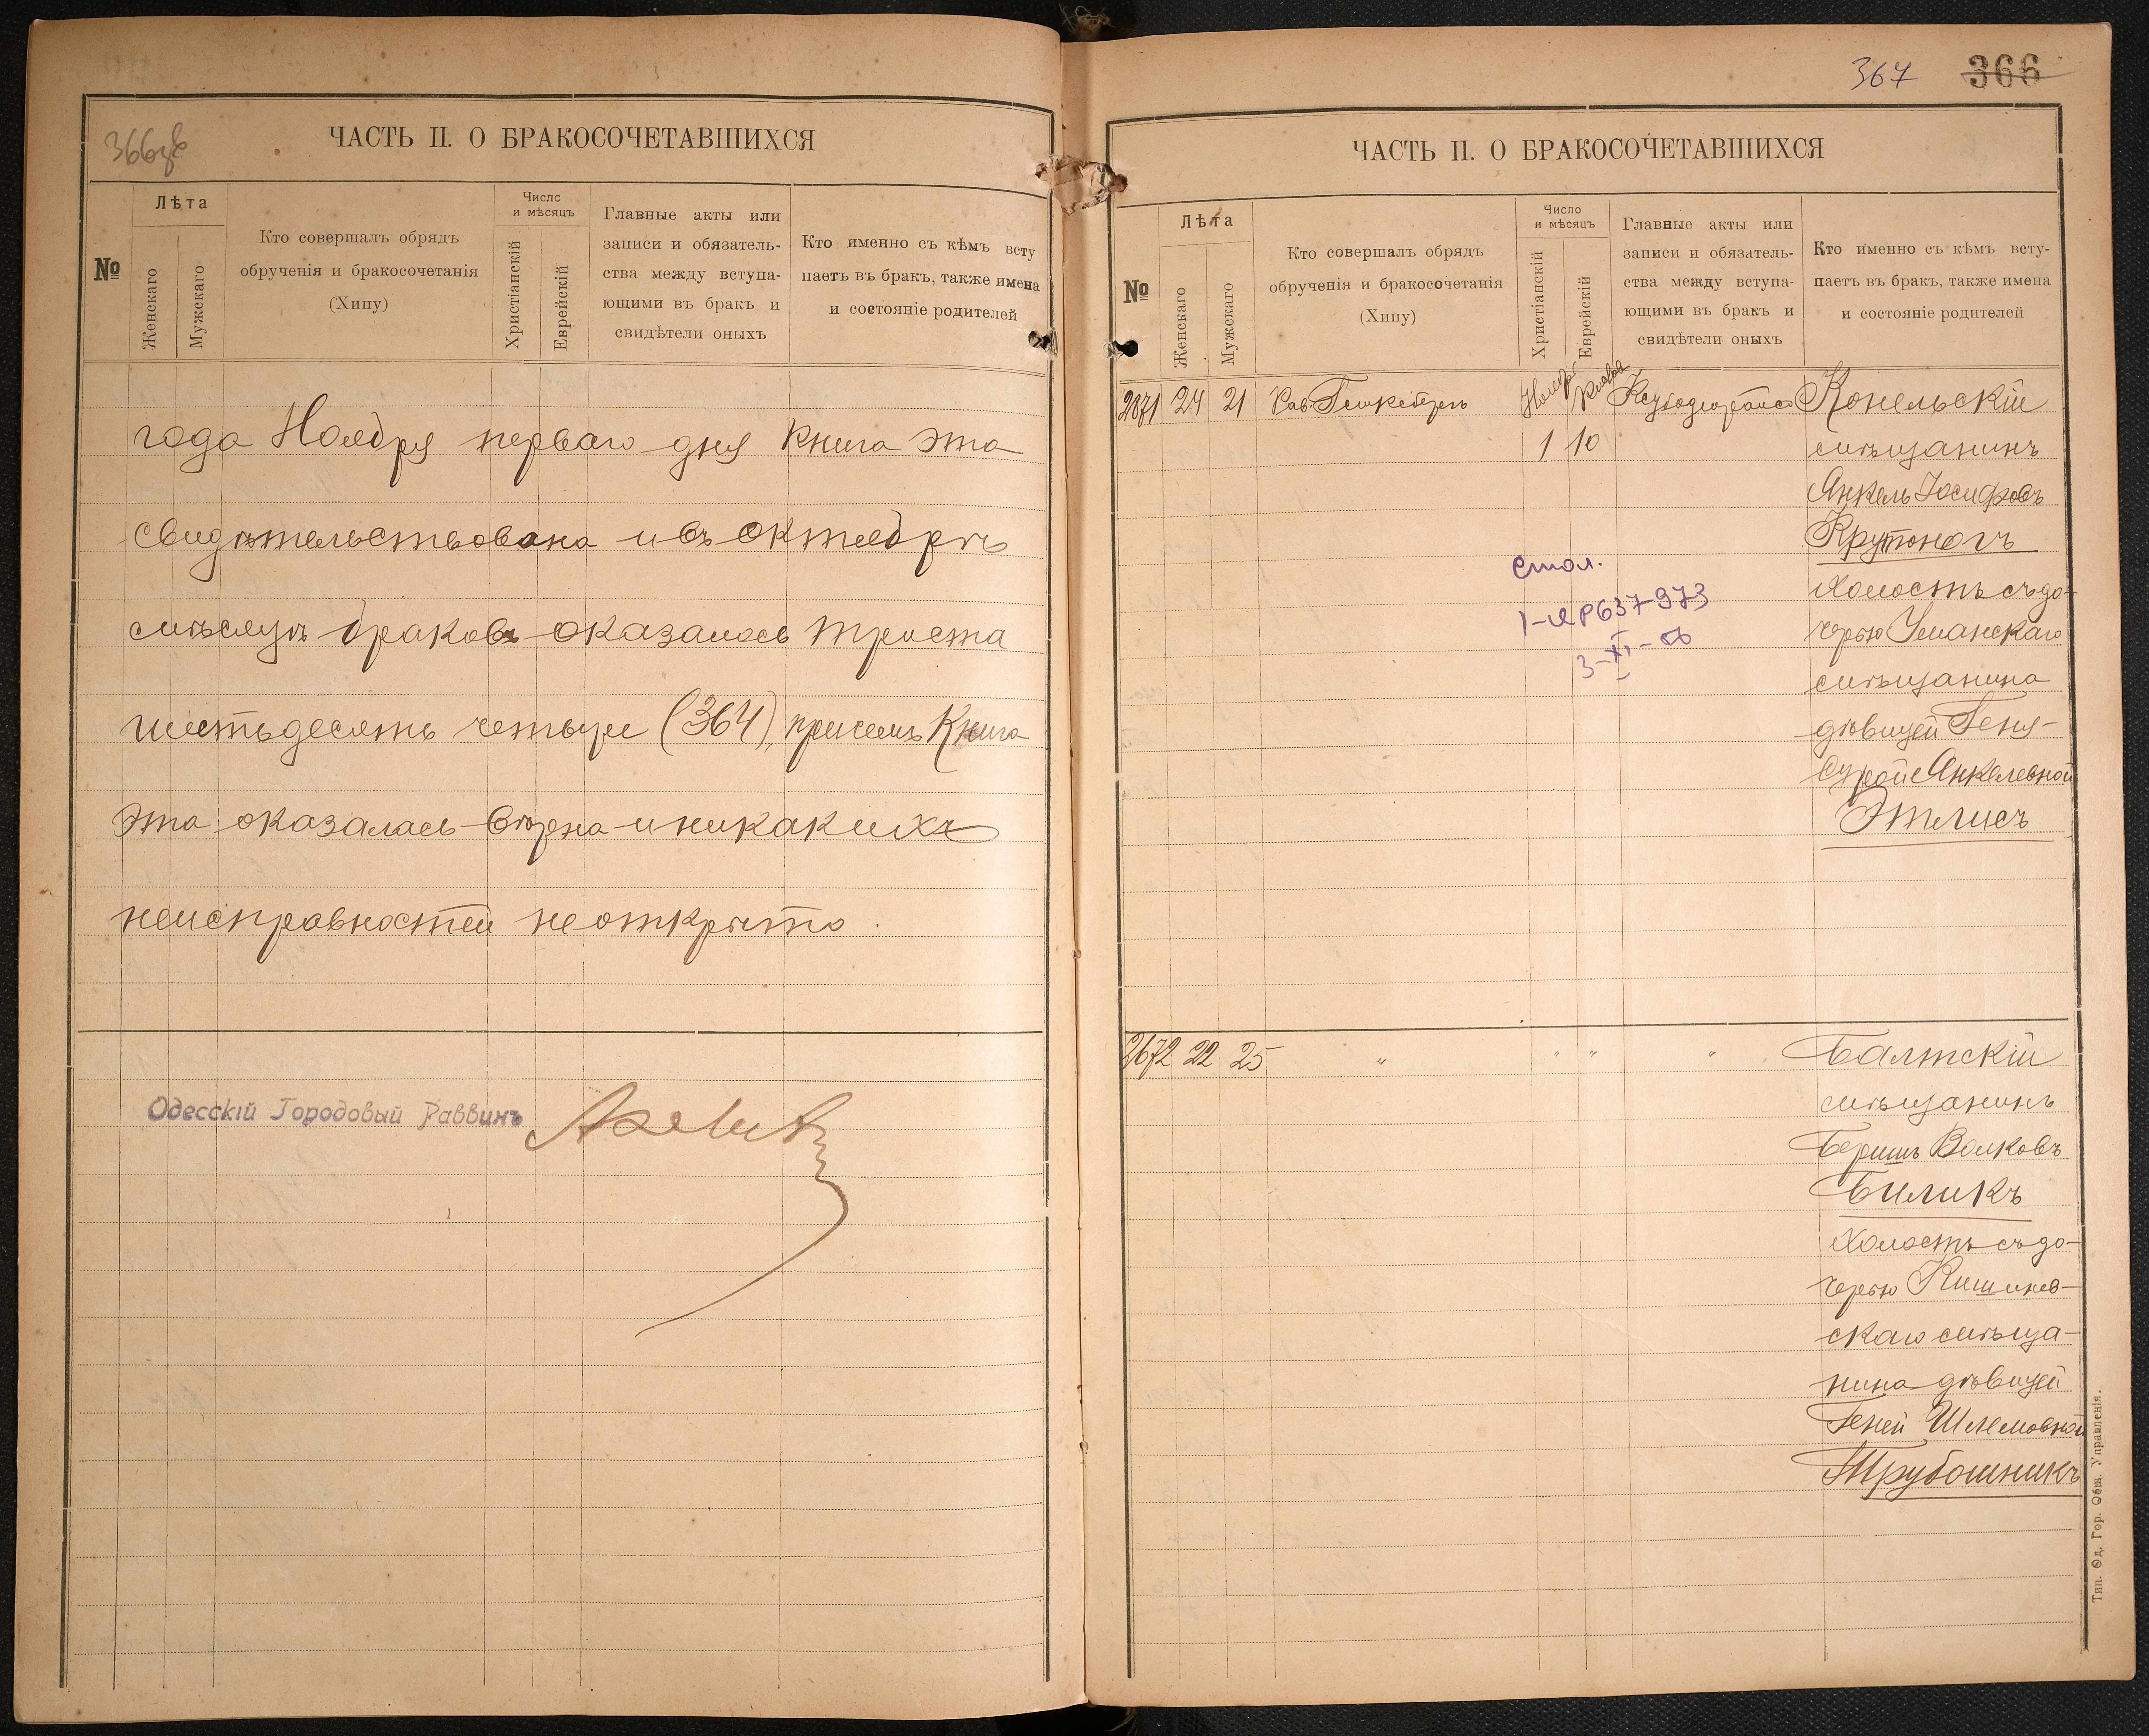 366 зв
ЧАСТЬ II. О БРАКОСОЧЕТАВШИХСЯ
№
Лѣта
Женскаго
Мужскаго
Кто совершалъ обрядъ
обрученія и бракосочетанія
(Хипу)
Число
и мѣсяцъ
Христіанскій
Еврейскій
Главные акты или
записи и обязатель-
ства между вступа-
ющими въ бракъ и
свидѣтели оныхъ
Кто именно съ кѣмъ всту
паетъ въ бракъ, также имена
и состояніе родителей
года Ноября перваго дня книга эта
свидѣтельствована и въ октябрѣ
мѣсяцѣ браковъ оказалось триста
шестьдесятъ четыре (364), причемъ Книга
эта оказалась вѣрна и никакихъ
неисправностей не открыто.
Одесскій Городовый Раввинъ
367 366
ЧАСТЬ II. О БРАКОСОЧЕТАВШИХСЯ
№
Лѣта
Женскаго
Мужскаго
Кто совершалъ обрядъ
обрученія и бракосочетанія
(Хипу)
Число
и мѣсяцъ
Христіанскій
Еврейскій
Главные акты или
записи и обязатель-
ства между вступа-
ющими въ бракъ и
свидѣтели оныхъ
Кто именно съ кѣмъ всту-
паетъ въ бракъ, также имена
и состояніе родителей
2671 24 21 Рав. Ноября Конельскій
1 10 мѣщанинъ
Анкель Іосифовъ
Крутоногъ
холостъ съ до-
черью Уманскаго
мѣщанина
дѣвицей Геня-
Сурой Анкелевной
Этлисъ
3-XI-
2672 22 25 " " " " Балтскій
мѣщанинъ
Беришъ Волковъ
Биликъ
холостъ съ до-
черью Кишинев-
скаго мѣща-
нина дѣвицей
Геней Шлемовной
Трубошникъ
Тип. Од. Гор. Общ. Управленія.